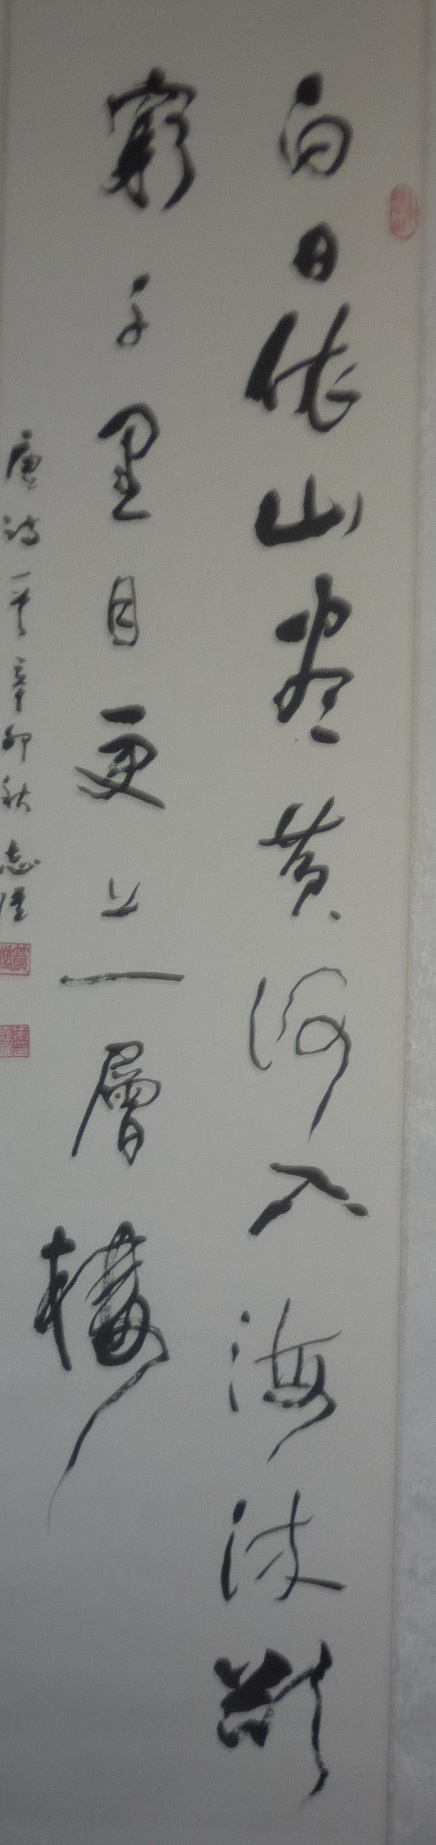 白日依山盡黃河入海流欲
窮千里目更上一層樓
唐詩一首辛卯秋志隆